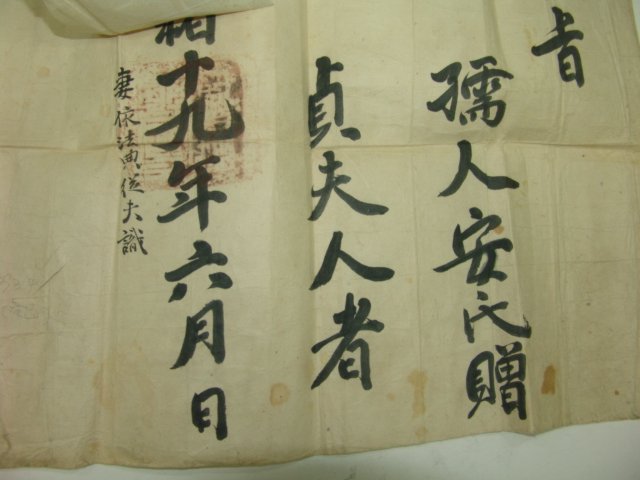 旨
孺人安氏贈
貞夫人者
十九年六月日
妻依法典從夫職